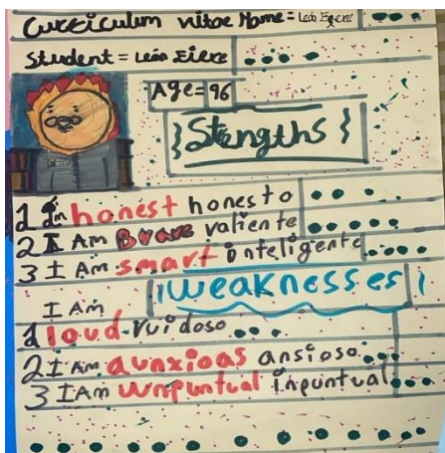 Curriculum vitae Name = León Eiere
Student = León Eiere
Age = 96
{ Stengths }
1 Im honest honesto
2 I Am Brave valiente
3 I Am smart inteligente
¡weaknesses!
I Am
1 loud-ruidoso
2 I Am aunxioas ansioso
3 I Am unpuntual inpuntual